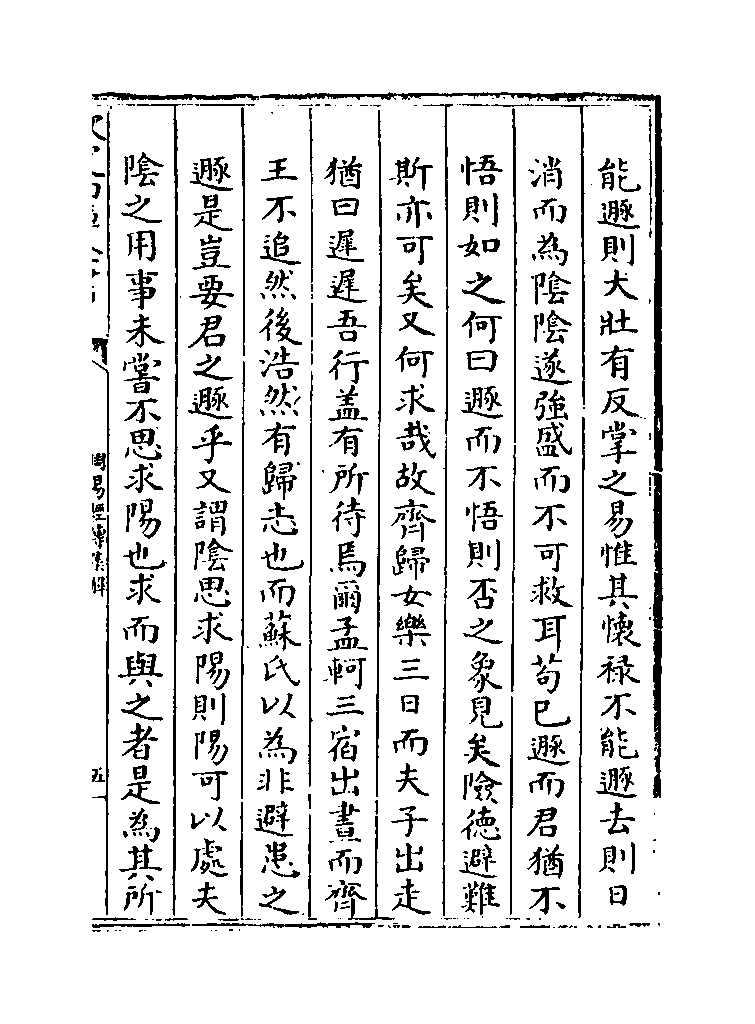 能遯則大壯有反掌之易惟其懷祿不能遯去則日
消而為陰陰遂強盛而不可救耳苟已遯而君猶不
悟則如之何曰遯而不悟則否之象見矣險德避難
斯亦可矣又何求哉故齊歸女樂三日而夫子出走
猶曰遲遲吾行盖有所待焉爾孟軻三宿出晝而齊
王不追然後浩然有歸志也而蘇氏以為非避患之
遯是豈要君之遯乎又謂陰思求陽則陽可以處夫
陰之用事未嘗不思求陽也求而與之者是為其所
周易經傳集解